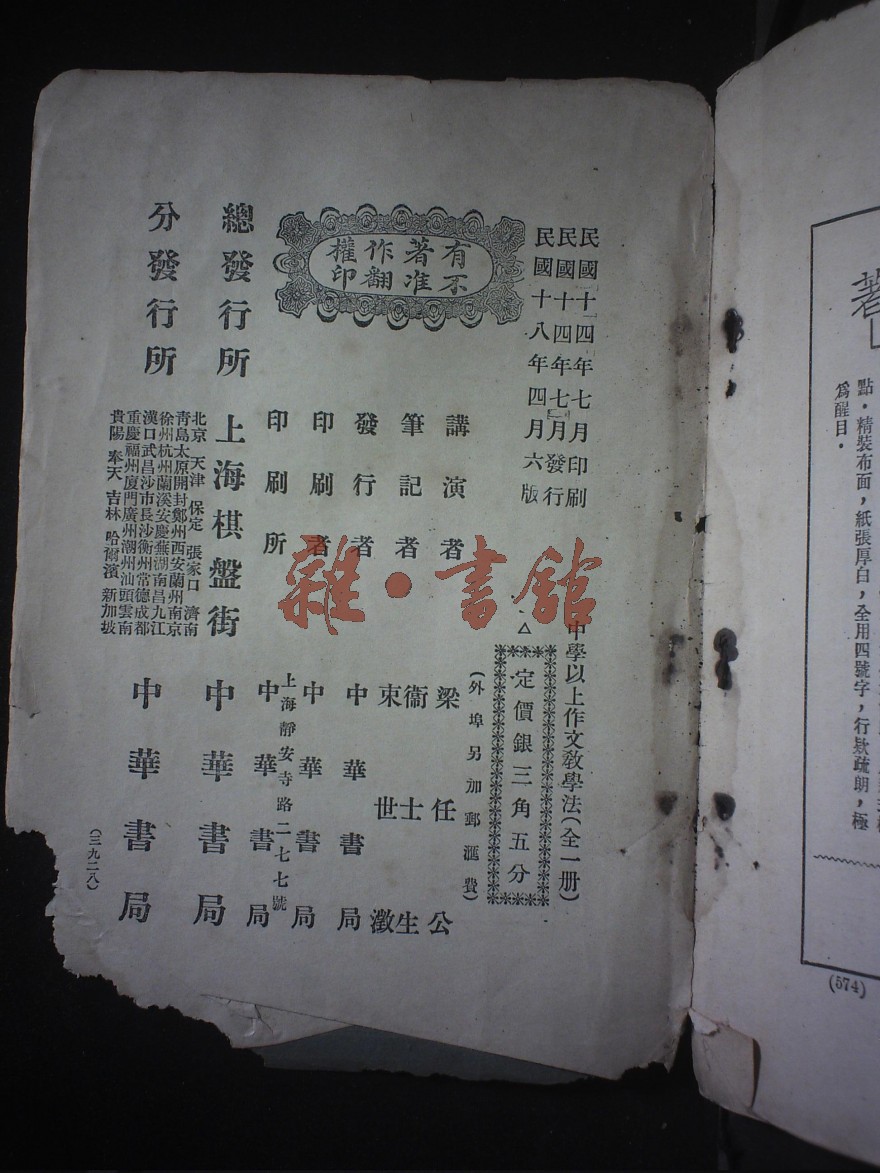 點・精裝布面，紙張厚白，全用四號字，行欵疏朗，極
爲醒目・
(574)
民國十四年七月印刷
民國十四年七月發行
民國十八年四月六版
有著作權
不准翻印
中學以上作文教學法(全一册)
△
定價銀三角五分
(外埠另加郵滙費)
講演者 梁任公
筆記者 衞士生
束世澂
發行者 中華書局
印刷者 中華書局
上海靜安寺路二七七號
印刷所 中華書局
總發行所 上海棋盤街 中華書局
分發行所
北京 天津 保定 張家口 濟南
靑島太原開封鄭州西安蘭州南京
徐州杭州蘭溪安慶蕪湖南昌九江
漢口武昌沙市長沙衡州常德成都
重慶福州厦門廣州潮州汕頭雲南
貴陽 奉天 吉林 哈爾濱 新加坡
中華書局
(三九二八)
雜・書舘